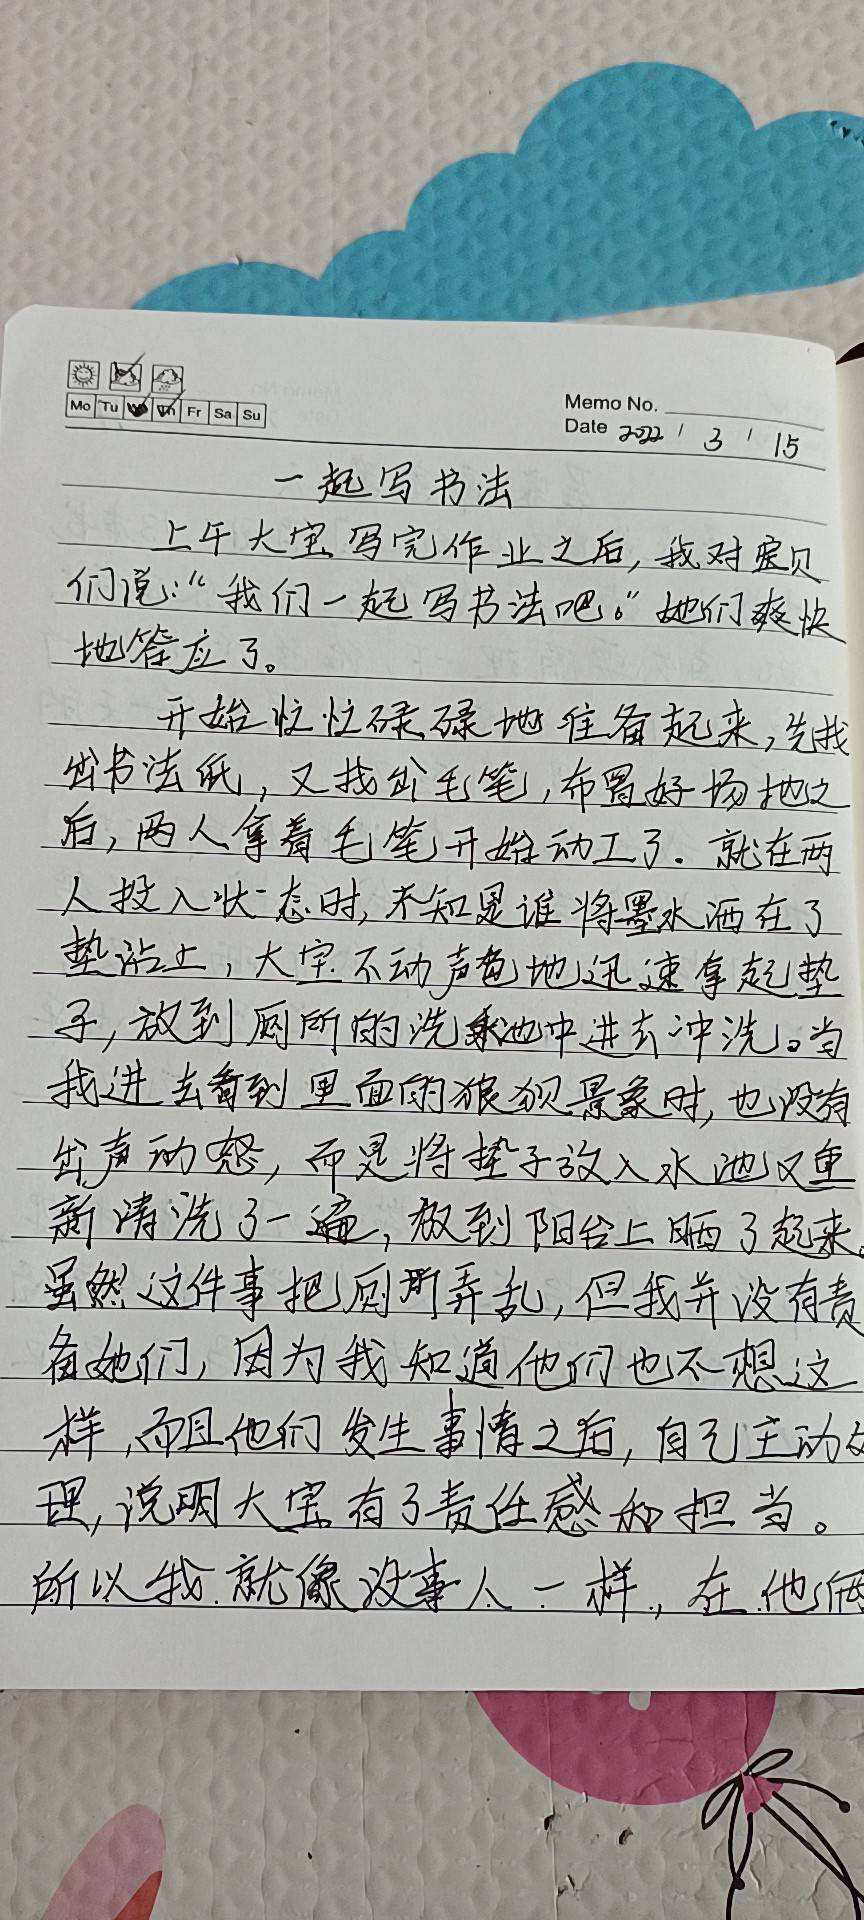 Mo Tu We Th Fr Sa Su
Memo No.
Date 2022 / 3 / 15
一起写书法
上午大宝写完作业之后,我对宝贝
们说:"我们一起写书法吧。"她们爽快
地答应了。
开始忙忙碌碌地准备起来,先找
出书法纸,又找出毛笔,布置好场地之
后,两人拿着毛笔开始动工了。就在两
人投入状态时,不知是谁将墨水洒在了
垫沾上,大宝不动声色地迅速拿起垫
子,放到厕所的洗漱池中进去冲洗。当
我进去看到里面的狼狈景象时,也没有
出声动怒,而是将垫子放入水池又重
新清洗了一遍,放到阳台上晒了起来。
虽然这件事把厕所弄乱,但我并没有责
备她们,因为我知道他们也不想这
样,而且他们发生事情之后,自己主动处
理,说明大宝有了责任感和担当。
所以我就像没事人一样,在他俩